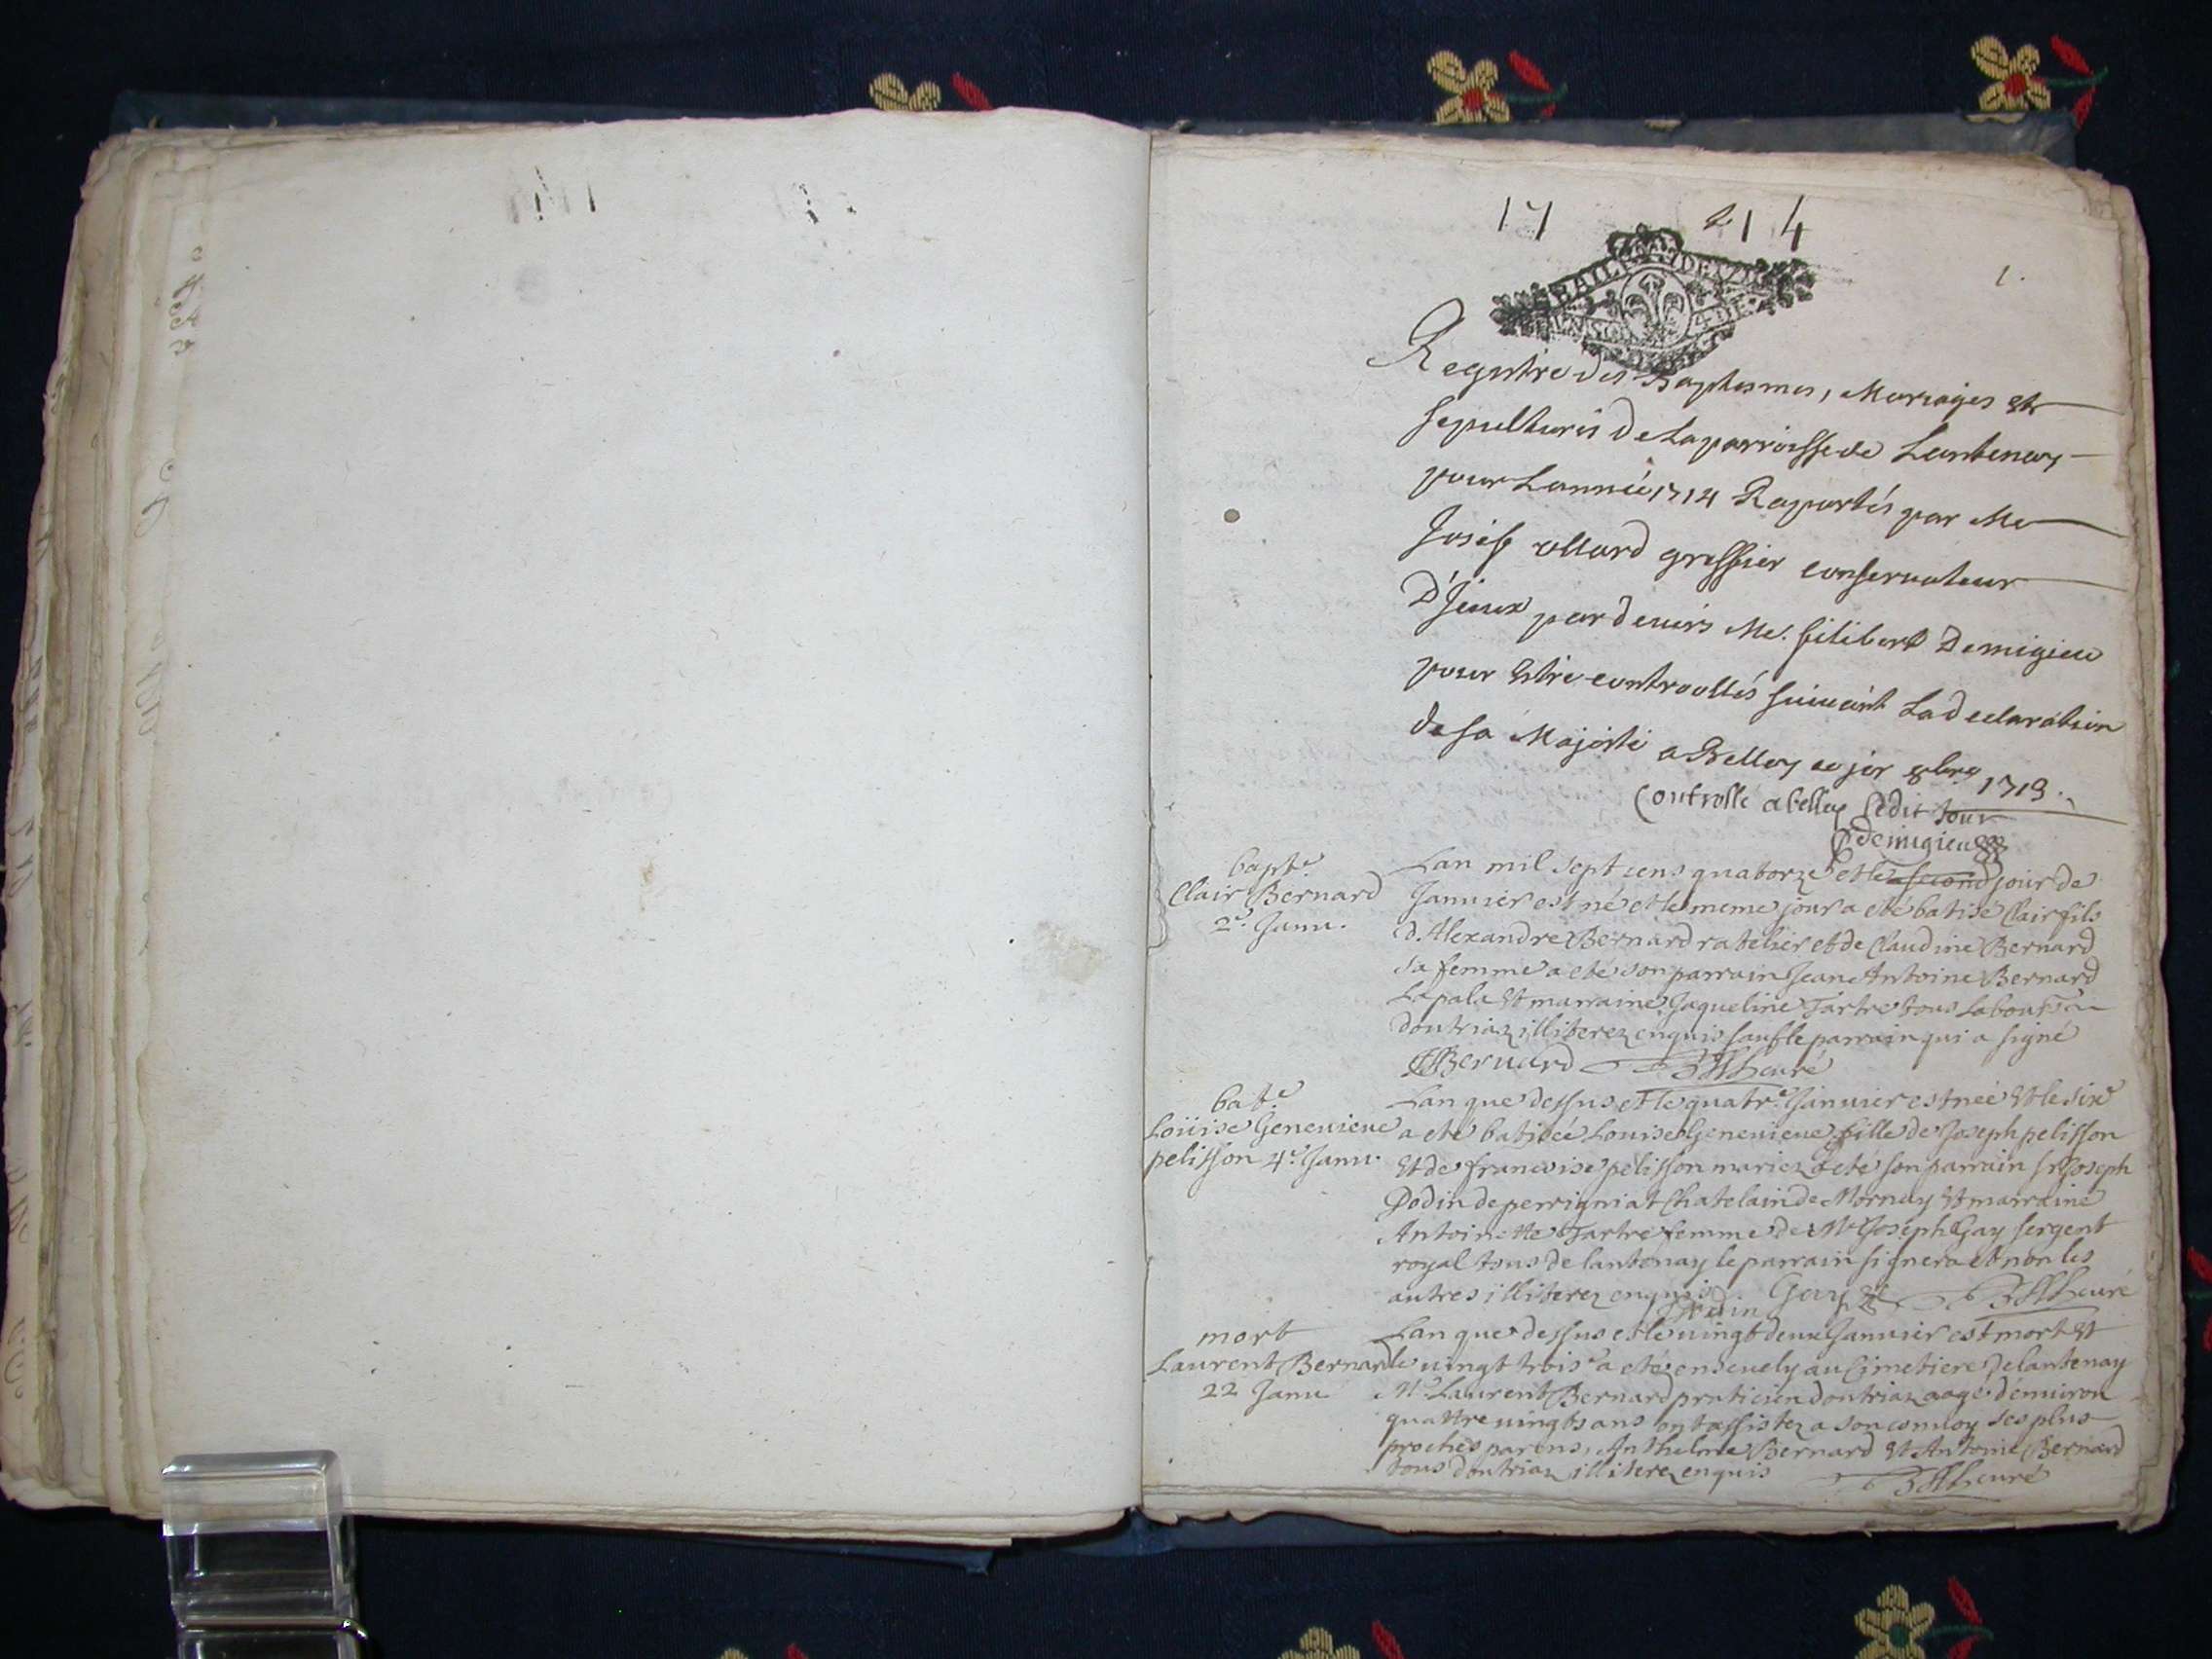 17 14
1.
Registre des Baptesmes, Mariages et
sepultures de La parroisse de Lantenay
pour Lannéé 1714 Raportés par Me
Josesp ollard greffier conservateur
D'Jceux par devers Me. filibert Demigieu
pour Estre controollés suivant La declaration
de sa Majesté a Belley ce jer xbre 1713.
Controllé a belley ledit jour
Demigieu
bapt.e
Clair Bernard
2.e Janu.
Lan mil sept cens quatorze et le second jour de
Januier est né et le meme jour a eté batisé Clair fils
d'Alexandre Bernard ratelier et de Claudine Bernard
sa femme a eté son parrain Jean Antoine Bernard
Lapala et marraine Jaqueline Tartre tous Labour
doutriaz illiterez enquis sauf le parrain qui a signé
Bernard curé
bat.e
Loüise Geneuieue
pelisson 4.e Janu.
Lan que dessus et le quatr.e Januier est née et le sixe
a eté batisée Louise Geneuieue fille de Joseph pelisson
et de francoise pelisson mariez a eté son parrain sr Joseph
Dodin de perrigniat Chatelain de Mornay et marraine
Antoinette Tartre femme de Me Joseph Gay sergent
royal tous de lantenay le parrain signera et non les
autres illiterez enquis. Gay curé
Dodin
mort
Laurent Bernard
22 Janu
Lan que dessus et le uingt deux Januier est mort et
le uingt trois.e a eté enseuely au Cimetiere de lantenay
Me. Laurent Bernard praticien doutriaz aagé d'enuiron
quattre uingts ans ont assistez a son conuoy ses plus
proches parens, Anthelme Bernard et Antoine Bernard
tous doutriaz illiterez enquis curé